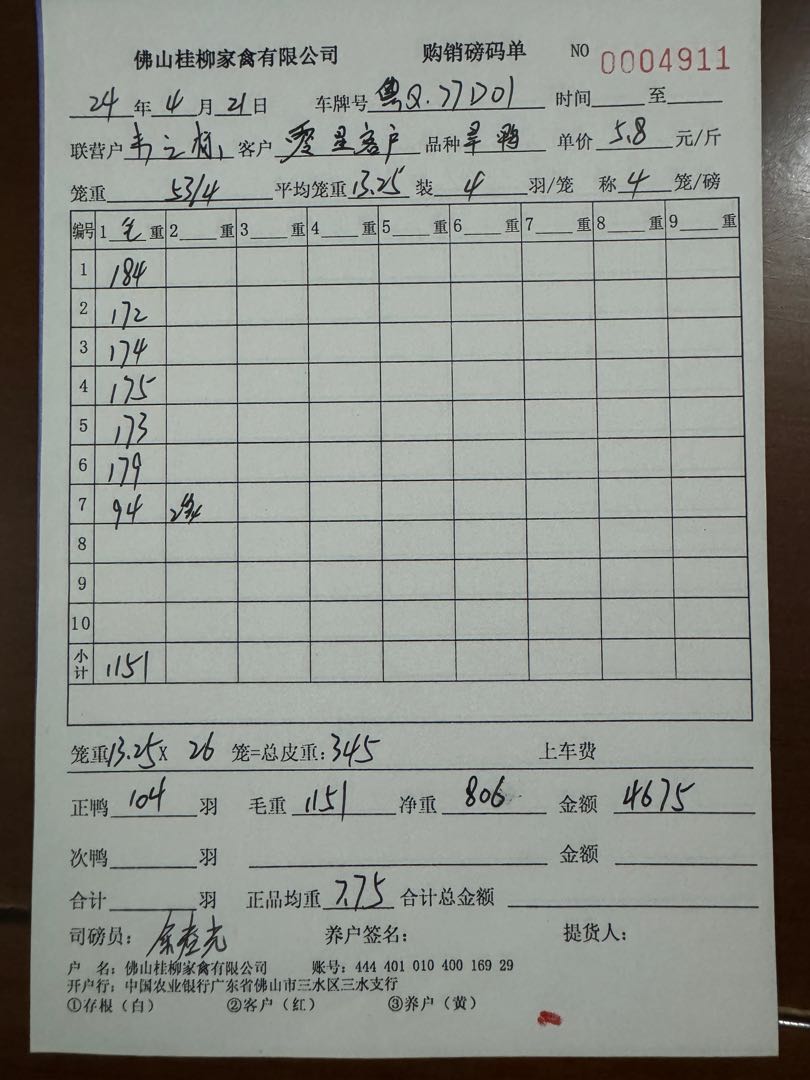 佛山桂柳家禽有限公司 购销磅码单 NO 0004911
24 年 4 月 21 日 车牌号 粤Q.77D01 时间 至
联营户 客户 爱星客户 品种 旱鸭 单价 5.8 元/斤
笼重 53/4 平均笼重 13.25 装 4 羽/笼 称 4 笼/磅
编号 1 毛 重 2 重 3 重 4 重 5 重 6 重 7 重 8 重 9 重
1 184
2 172
3 174
4 175
5 173
6 179
7 94 2笼
8
9
10
小计 1151
笼重 13.25 X 26 笼=总皮重: 345 上车费
正鸭 104 羽 毛重 1151 净重 806 金额 4675
次鸭 羽 金额
合计 羽 正品均重 7.75 合计总金额
司磅员: 养户签名: 提货人:
户 名: 佛山桂柳家禽有限公司 账号: 444 401 010 400 169 29
开户行: 中国农业银行广东省佛山市三水区三水支行
①存根（白） ②客户（红） ③养户（黄）